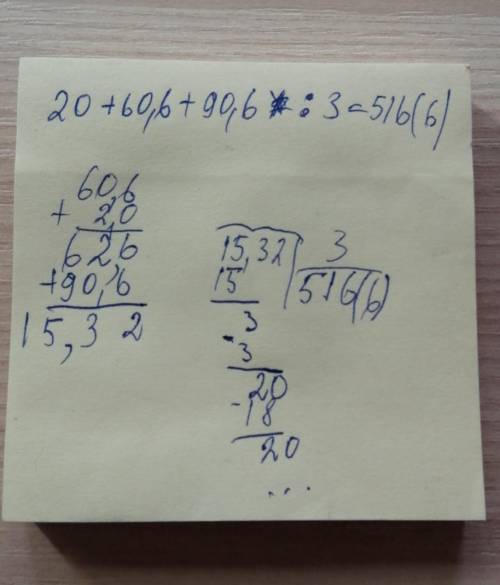 20+60,6+90,6 : 3=516(6)
60,6
+ 2,0
626
+90,6
15,32
15,32 3
15 516(6)
3
3
20
-18
20
...